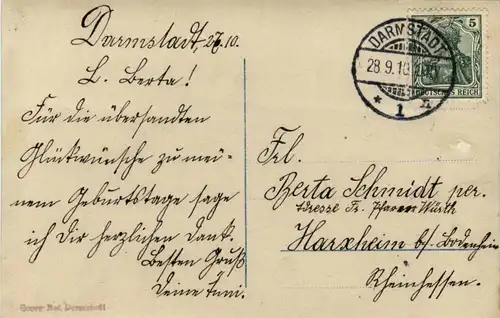 Darmstadt, 27.10.
L. Berta!
Für die übersandten
Glückwünsche zu mei-
nem Geburtstage sage
ich Dir herzlichen Dank.
Besten Gruß
Deine Tüni.
DARMSTADT
28.9.10
* 1 n
5
DEUTSCHES REICH
Frl.
Berta Schmidt per.
Adresse Fr. Pfarrer Würth
Harxheim b/. Bodenheim
Rheinhessen.
Darmstadt